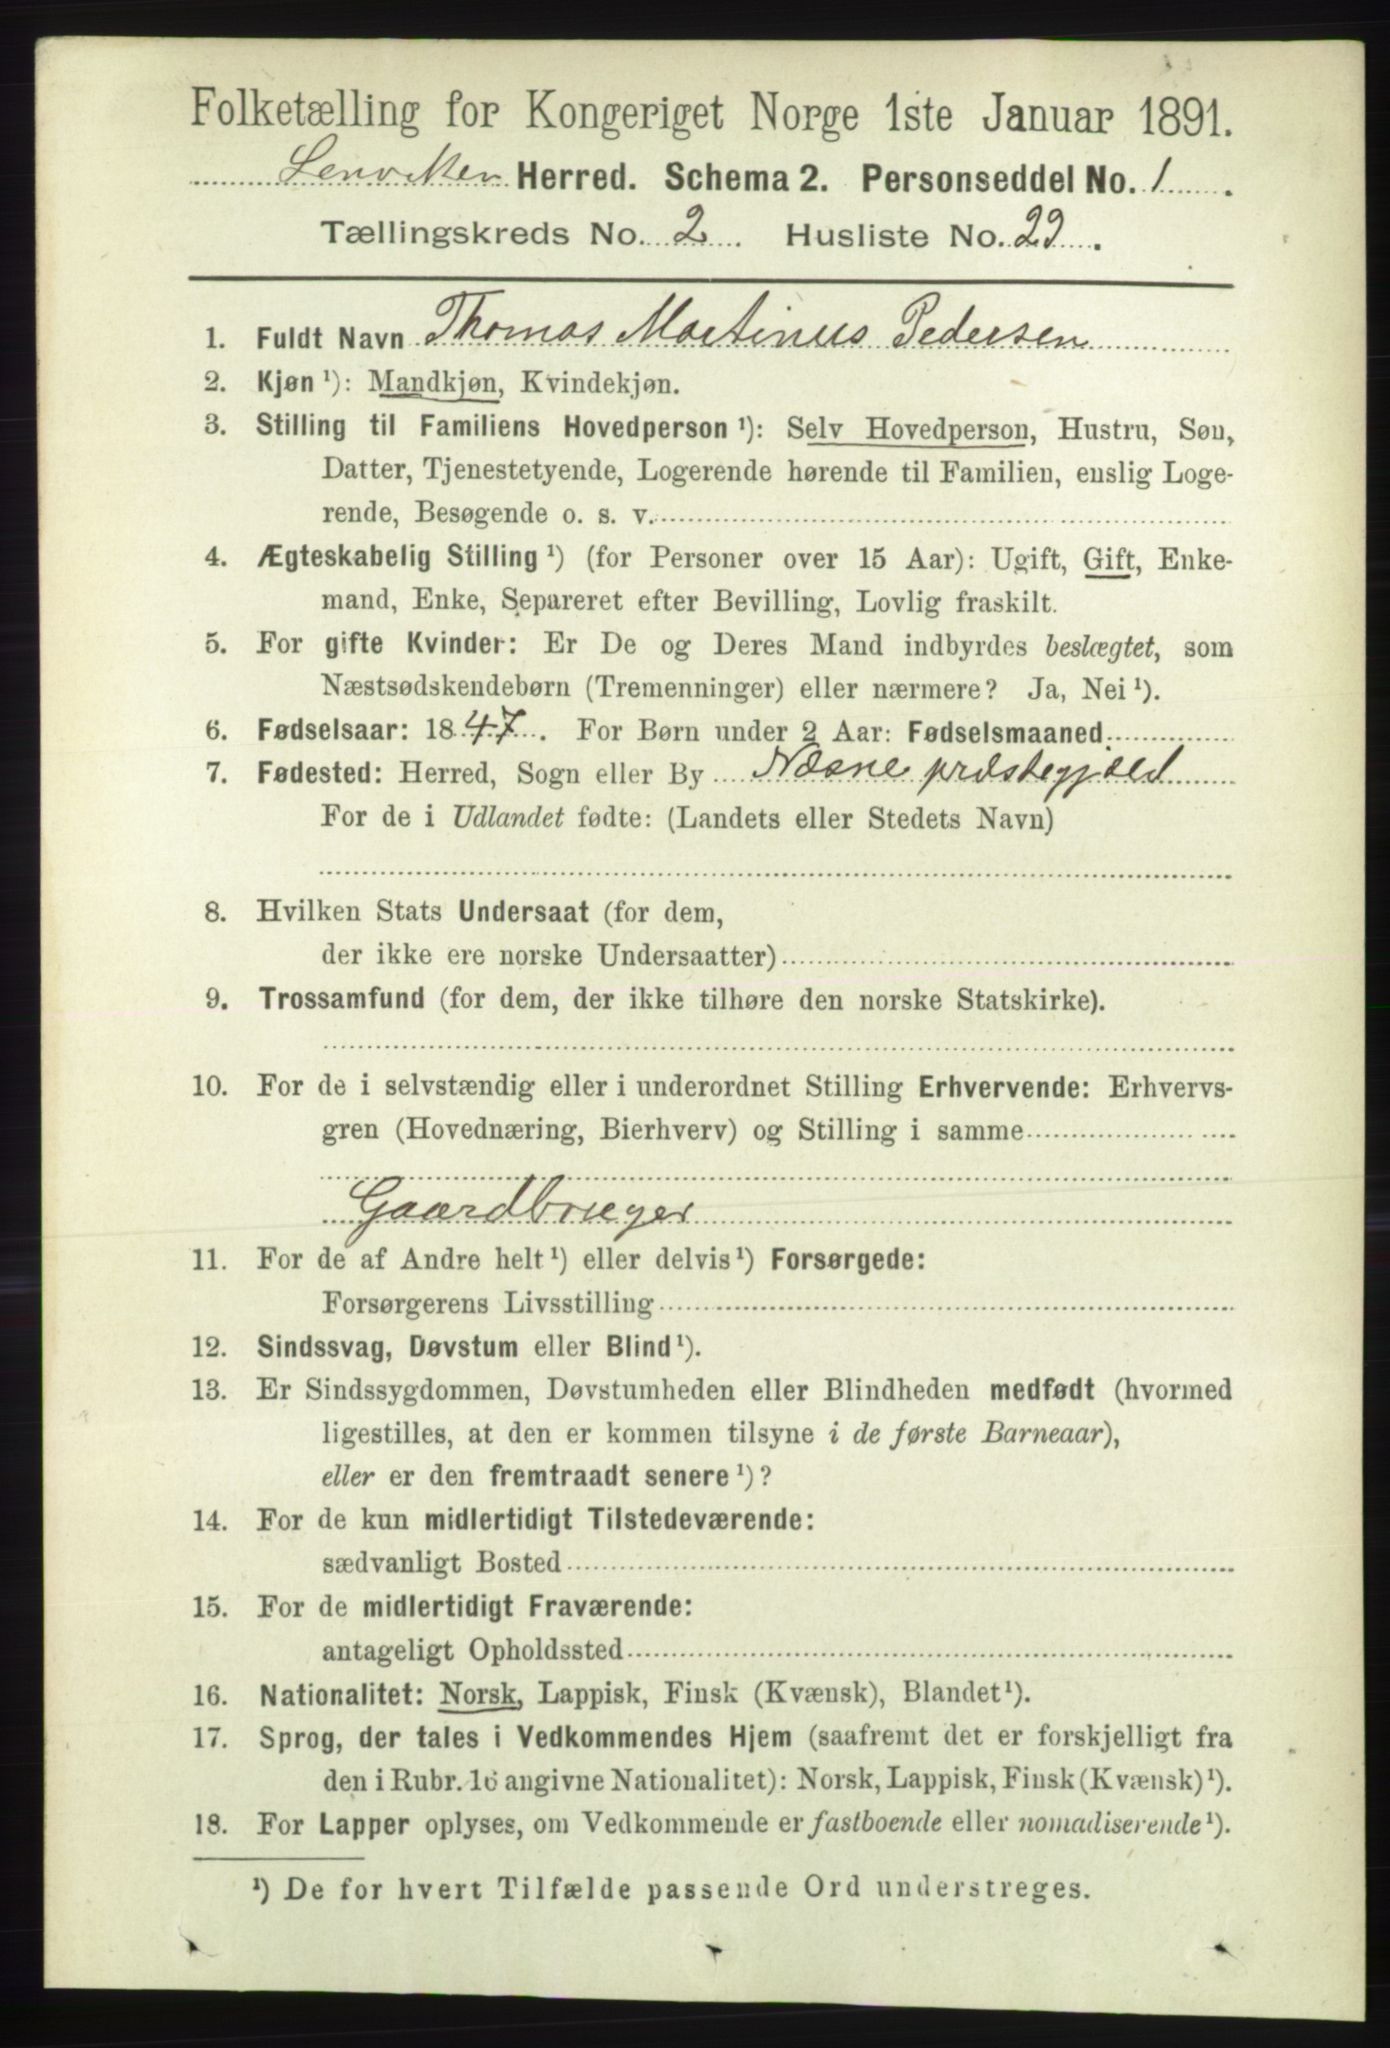 Folketælling for Kongeriget Norge 1ste Januar 1891.
Lenviken Herred. Schema 2. Personseddel No. 1.
Tællingskreds No. 2. Husliste No. 22.
1. Fuldt Navn Thomas Martinus Pedersen
2. Kjøn ¹): Mandkjøn, Kvindekjøn.
3. Stilling til Familiens Hovedperson ¹): Selv Hovedperson, Hustru, Søn,
Datter, Tjenestetyende, Logerende hørende til Familien, enslig Loge-
rende, Besøgende o. s. v.
4. Ægteskabelig Stilling ¹) (for Personer over 15 Aar): Ugift, Gift, Enke-
mand, Enke, Separeret efter Bevilling, Lovlig fraskilt.
5. For gifte Kvinder: Er De og Deres Mand indbyrdes beslægtet, som
Næstsødskendebørn (Tremenninger) eller nærmere? Ja, Nei ¹).
6. Fødselsaar: 1847. For Børn under 2 Aar: Fødselsmaaned
7. Fødested: Herred, Sogn eller By Næsne præstegjæld
For de i Udlandet fødte: (Landets eller Stedets Navn)
8. Hvilken Stats Undersaat (for dem,
der ikke ere norske Undersaatter)
9. Trossamfund (for dem, der ikke tilhøre den norske Statskirke).
10. For de i selvstændig eller i underordnet Stilling Erhvervende: Erhvervs-
gren (Hovednæring, Bierhverv) og Stilling i samme
Gaardbruger
11. For de af Andre helt ¹) eller delvis ¹) Forsørgede:
Forsørgerens Livsstilling
12. Sindssvag, Døvstum eller Blind ¹).
13. Er Sindssygdommen, Døvstumheden eller Blindheden medfødt (hvormed
ligestilles, at den er kommen tilsyne i de første Barneaar),
eller er den fremtraadt senere ¹)?
14. For de kun midlertidigt Tilstedeværende:
sædvanligt Bosted
15. For de midlertidigt Fraværende:
antageligt Opholdssted
16. Nationalitet: Norsk, Lappisk, Finsk (Kvænsk), Blandet ¹).
17. Sprog, der tales i Vedkommendes Hjem (saafremt det er forskjelligt fra
den i Rubr. 16 angivne Nationalitet): Norsk, Lappisk, Finsk (Kvænsk) ¹).
18. For Lapper oplyses, om Vedkommende er fastboende eller nomadiserende ¹).
¹) De for hvert Tilfælde passende Ord understreges.